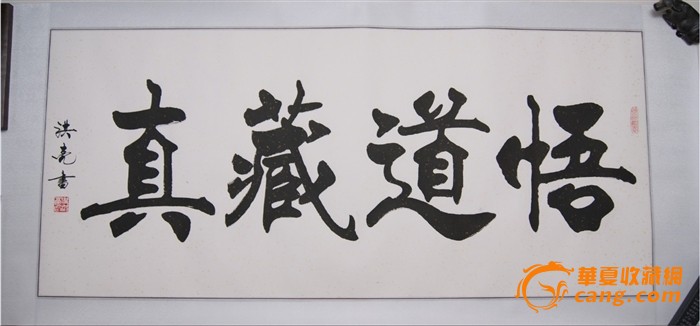 悟道藏真
洪亮書
華夏收藏網
cang.com